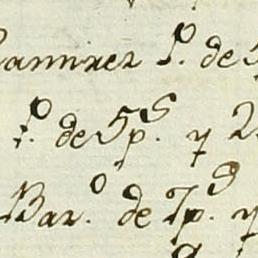 Ramirez P. de
P. de 5 p.s y 2
Bar.o de 7 p.s y